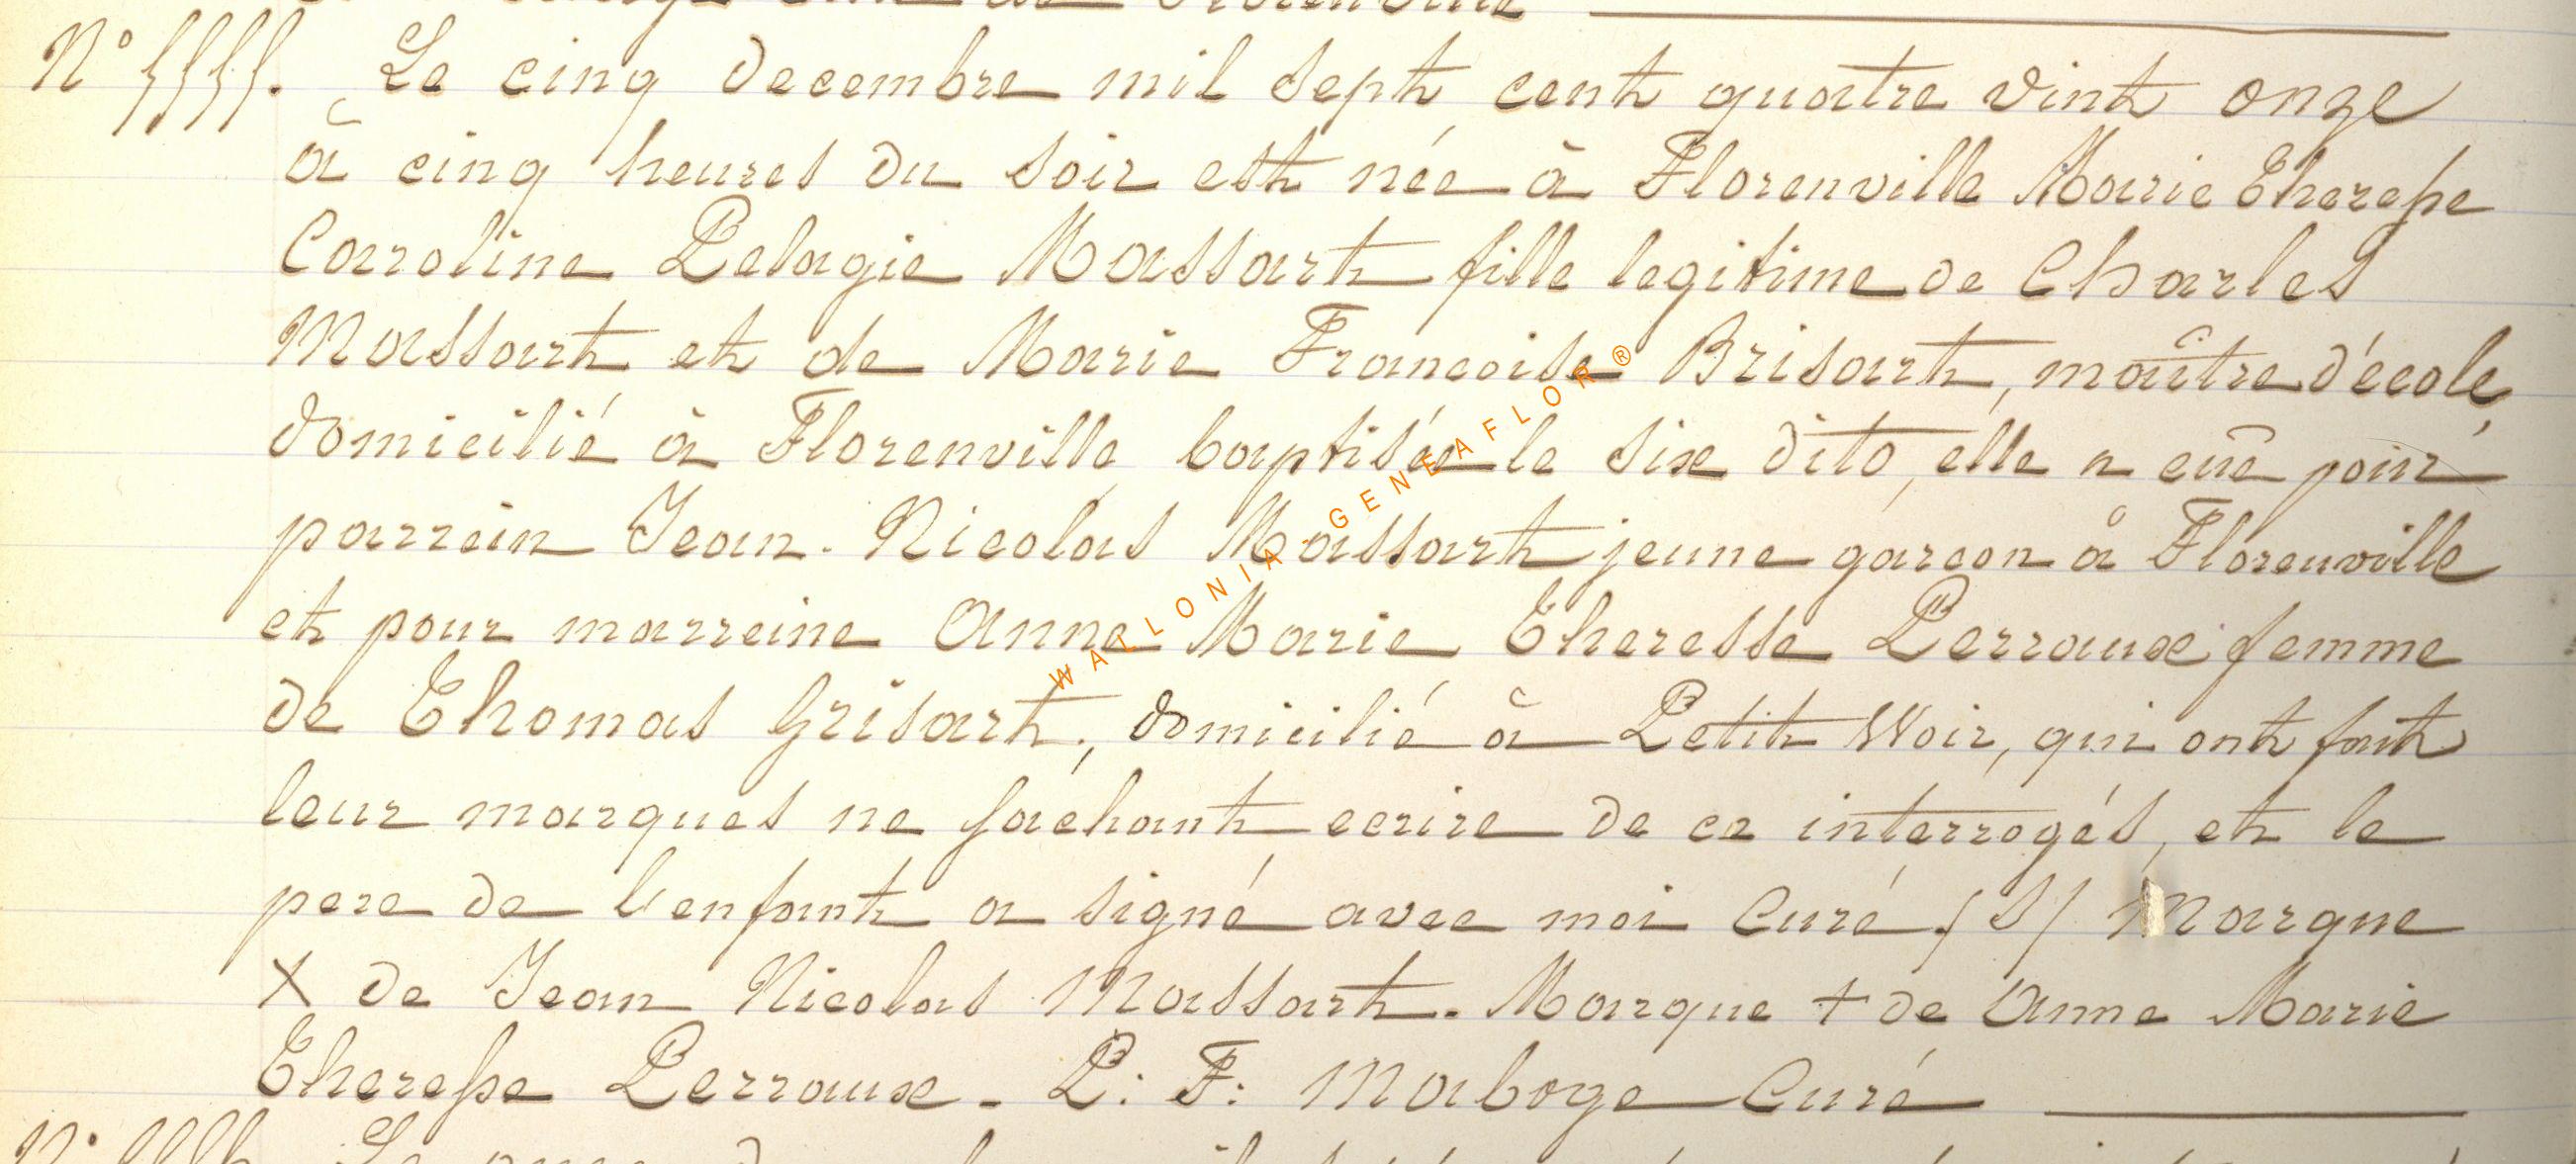 N° 5555. Le cinq decembre mil sept cent quatre vint onze
à cinq heures du soir est née à Florenville Marie Theresse
Carroline Pelagie Massart fille legitime de Charles
Massart et de Marie Francoise Brisart, maître d'école,
domicilié à Florenville, baptisée le six dito, elle a eüe pour
parrain Jean-Nicolas Massart jeune garcon à Florenville
et pour marreine Anne Marie Theresse Perraux femme
de Thomas Grisart, domicilié à Petit Voir, qui ont fait
leur marques ne sachant ecrire de ce interrogés, et le
pere de l'enfant a signé avec moi Curé. /S/ Marque
X de Jean Nicolas Massart. Marque + de Anne Marie
Theresse Perraux. P: F: Maboge Curé
WALLONIA - GENEAFLOR ®